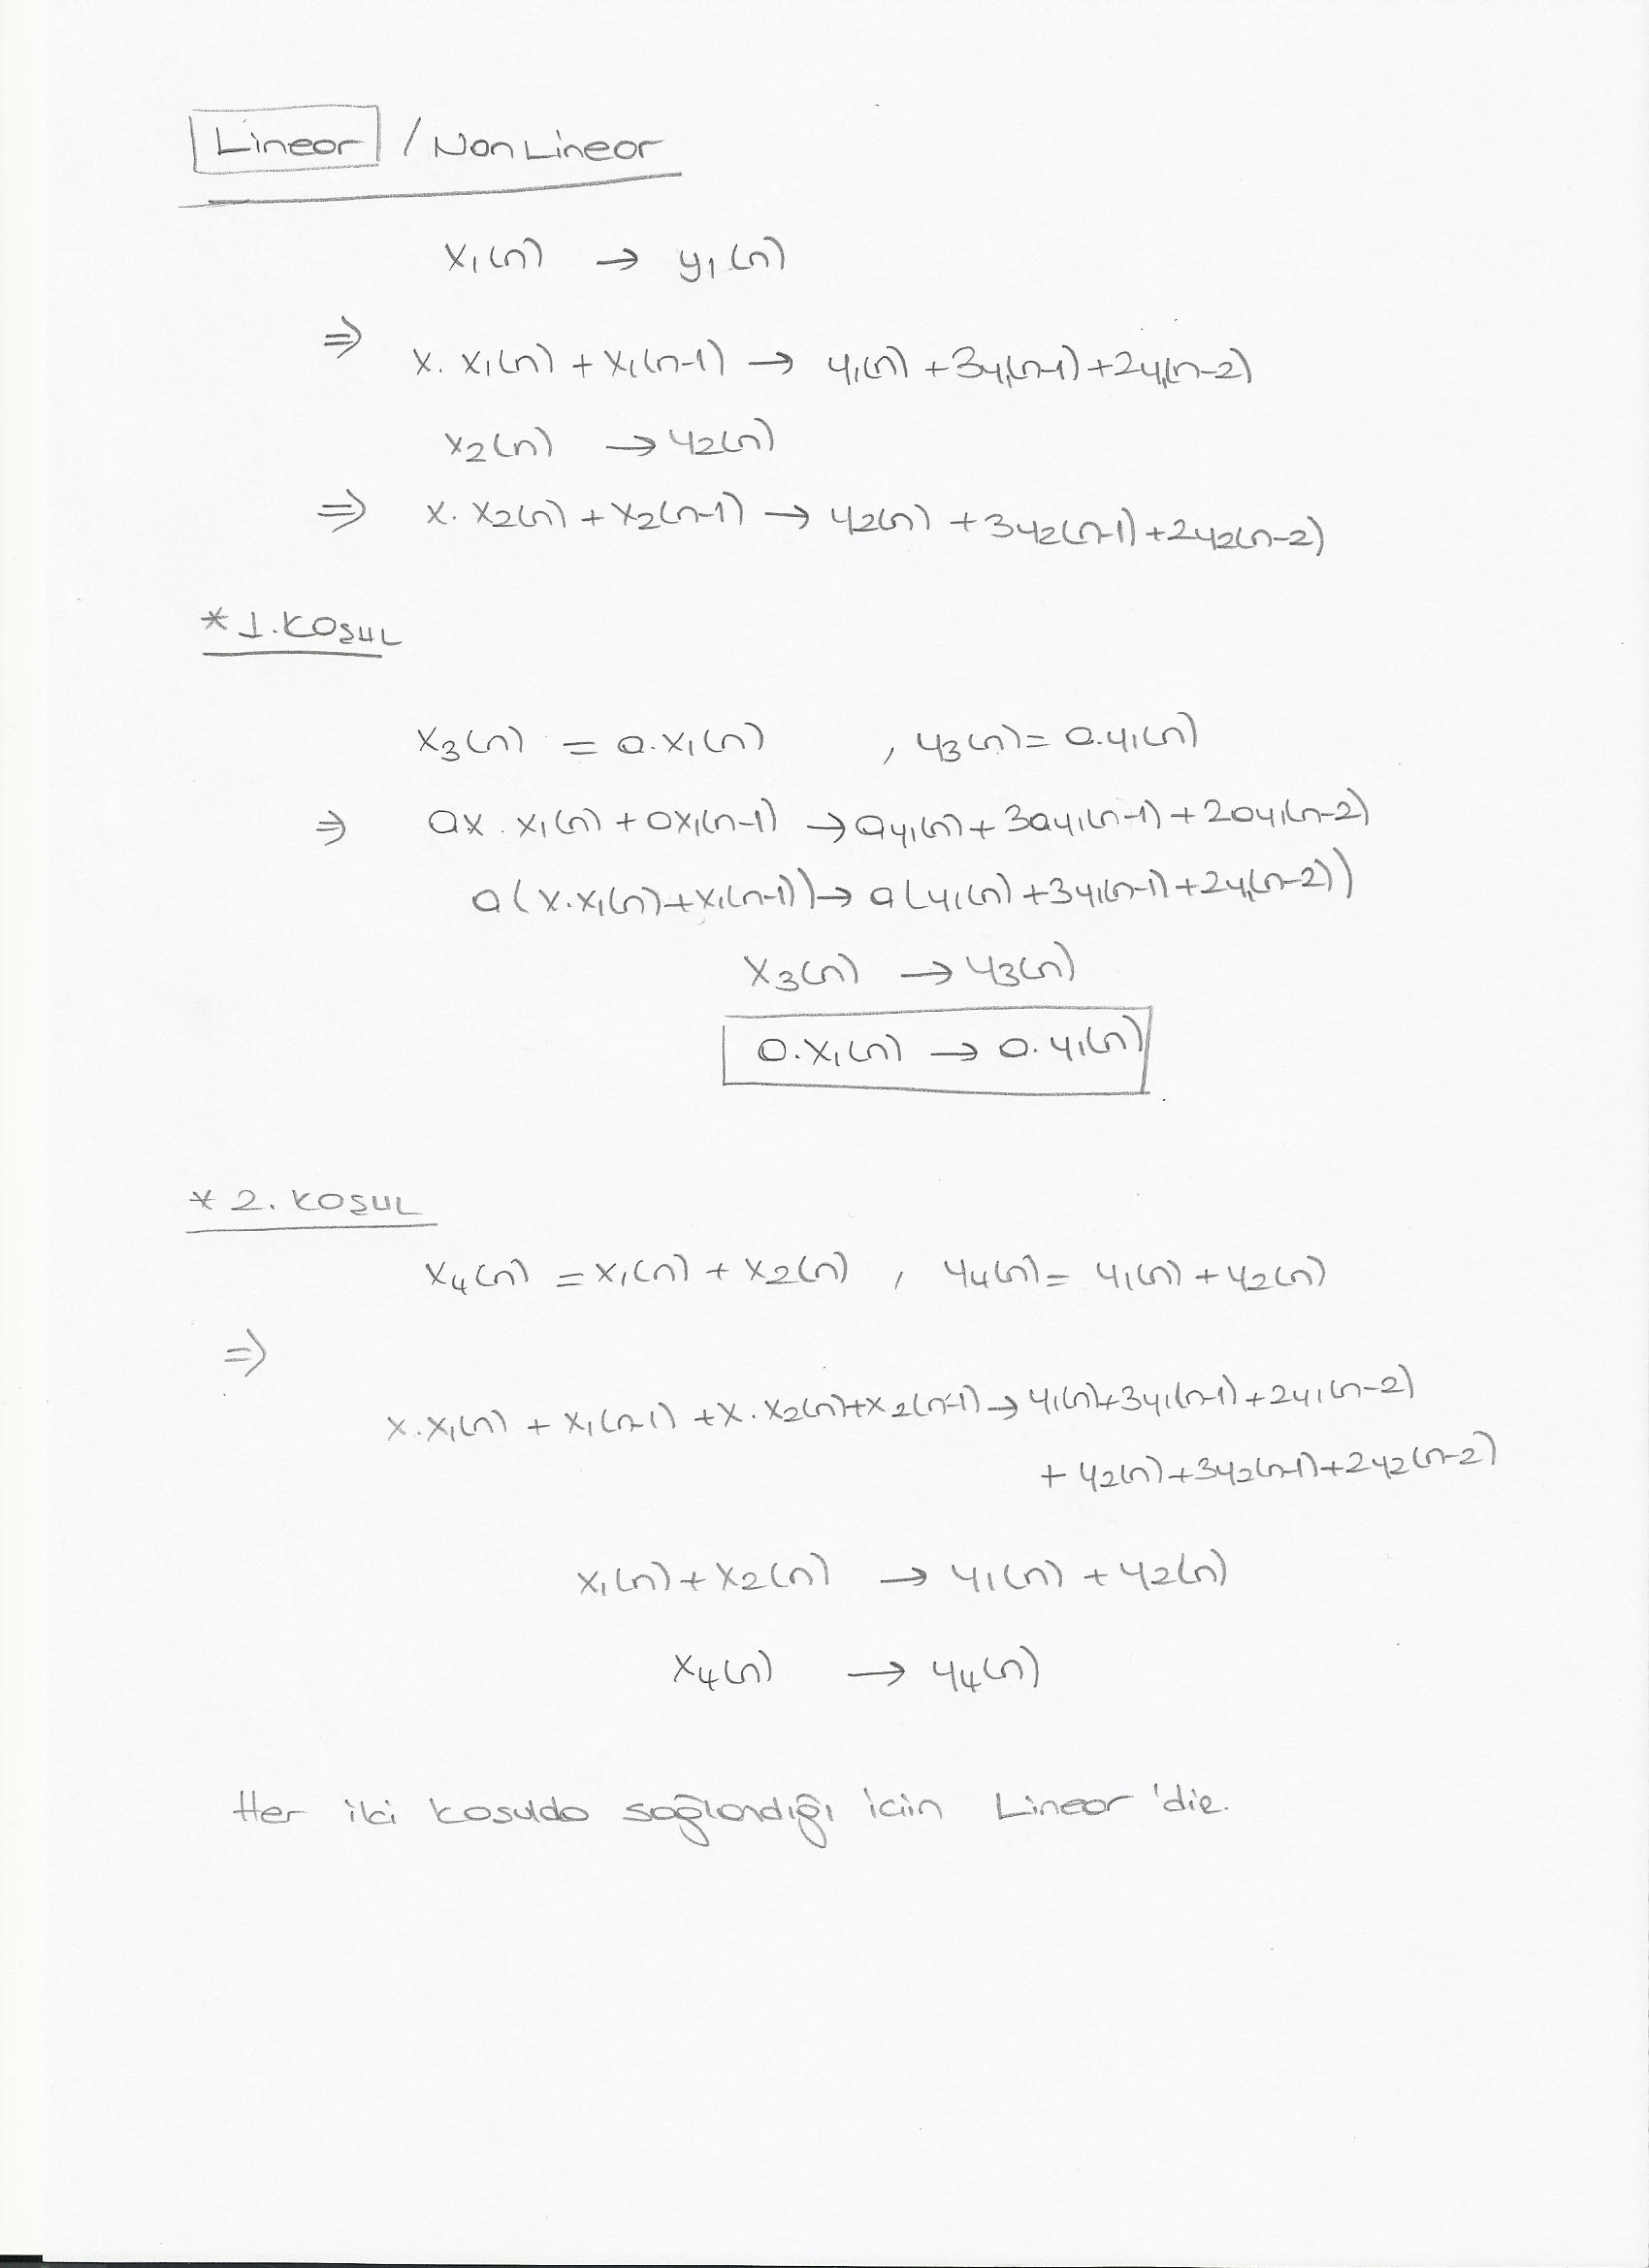 Linear / NonLinear
x₁(n) → y₁(n)
⇒ x. x₁(n) + x₁(n-1) → y₁(n) + 3y₁(n-1) + 2y₁(n-2)
x₂(n) → y₂(n)
⇒ x. x₂(n) + x₂(n-1) → y₂(n) + 3y₂(n-1) + 2y₂(n-2)
* 1. KOŞUL
x₃(n) = a.x₁(n) , y₃(n) = a.y₁(n)
⇒ ax. x₁(n) + ax₁(n-1) → ay₁(n) + 3ay₁(n-1) + 2ay₁(n-2)
a(x.x₁(n) + x₁(n-1)) → a(y₁(n) + 3y₁(n-1) + 2y₁(n-2))
x₃(n) → y₃(n)
a.x₁(n) → a.y₁(n)
* 2. KOŞUL
x₄(n) = x₁(n) + x₂(n) , y₄(n) = y₁(n) + y₂(n)
⇒
x.x₁(n) + x₁(n-1) + x.x₂(n) + x₂(n-1) → y₁(n) + 3y₁(n-1) + 2y₁(n-2)
+ y₂(n) + 3y₂(n-1) + 2y₂(n-2)
x₁(n) + x₂(n) → y₁(n) + y₂(n)
x₄(n) → y₄(n)
Her iki koşulda sağlandığı için Linear'dir.